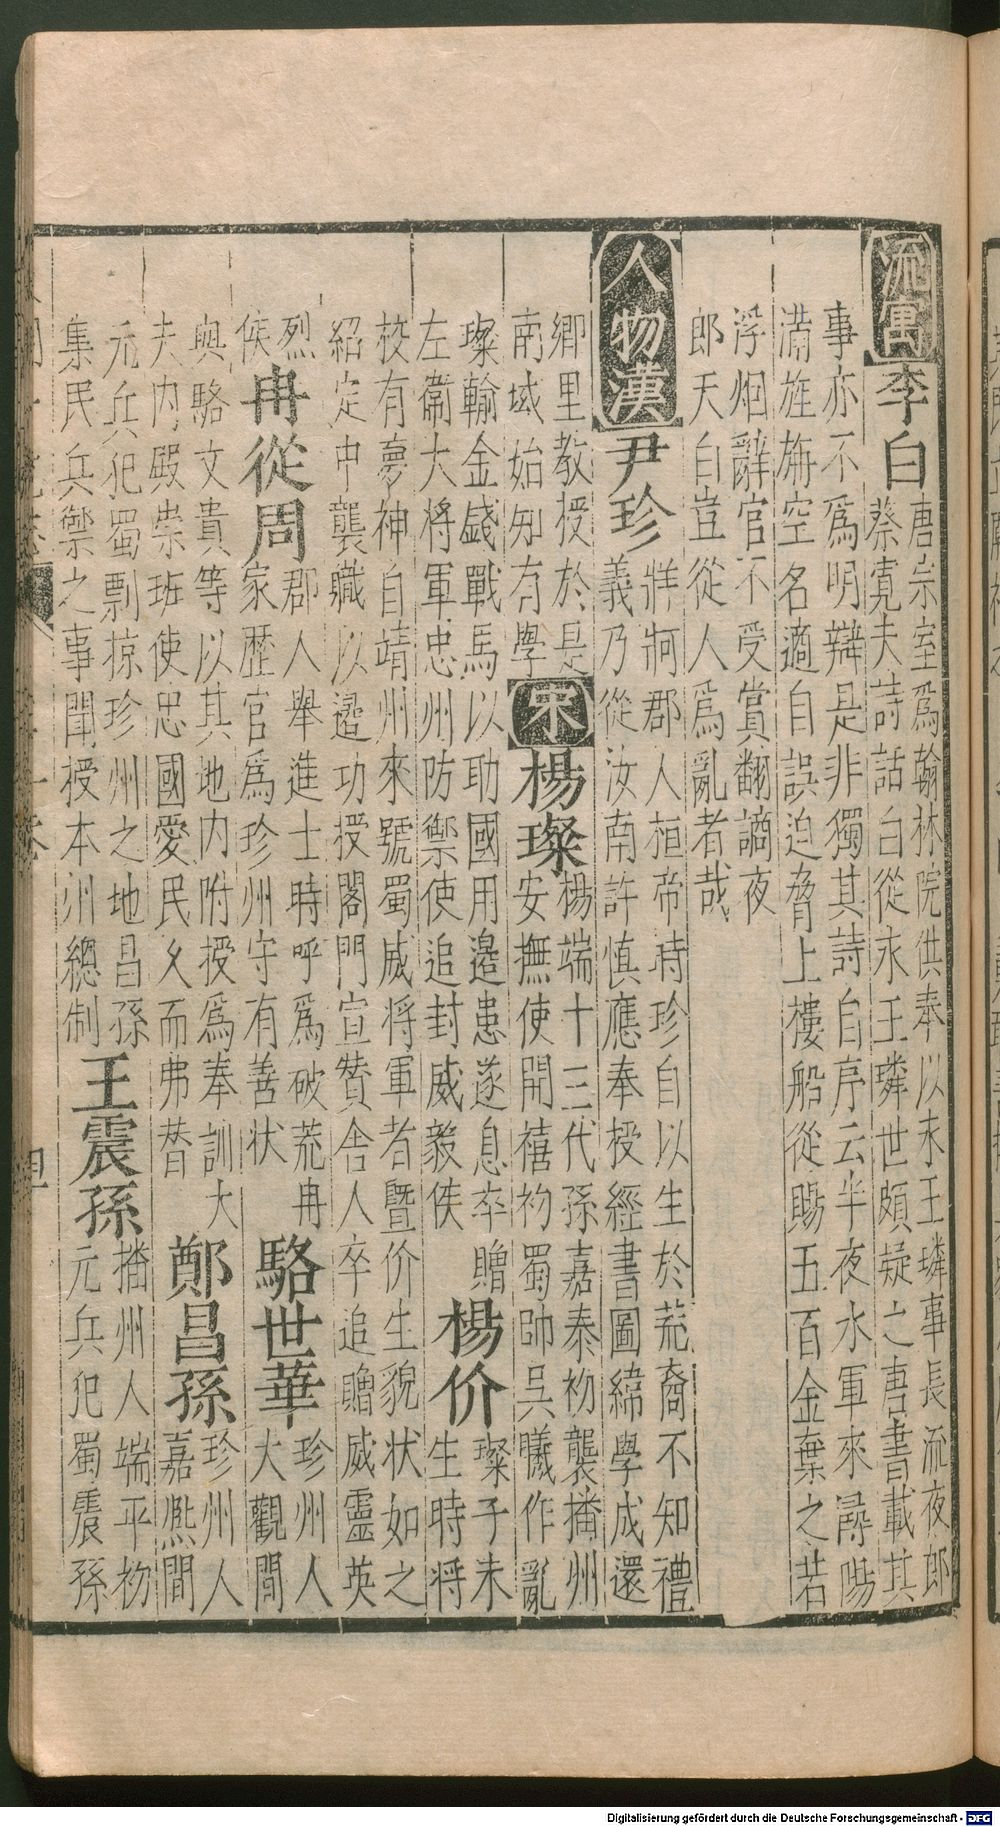 流寓
李白
唐宗室為翰林院供奉以永王璘事長流夜郎
蔡寬夫詩話白從永王璘世頗疑之唐書載其
事亦不為明辯是非獨其詩自序云半夜水軍來潯陽
滿旌旃空名適自誤迫脅上樓船從賜五百金棄之若
浮烟辭官不受賞翻謫夜
郎天自豈從人為亂者哉
人物漢
尹珍
牂牁郡人桓帝時珍自以生於荒裔不知禮
義乃從汝南許慎應奉授經書圖緯學成還
鄉里教授於是
南域始知有學
宋
楊璨
楊端十三代孫嘉泰初襲播州
安撫使開禧初蜀帥吳曦作亂
璨輸金錢戰馬以助國用邉患遂息卒贈
左衛大将軍忠州防禦使追封威毅侯
楊价
璨子未
生時将
校有夢神自靖州來號蜀威将軍者暨价生貌状如之
紹定中襲職以邉功授閣門宣贊舍人卒追贈威靈英
烈
侯
冉從周
郡人舉進士時呼為破荒冉
家歷官為珍州守有善状
駱世華
珍州人
大觀間
與駱文貴等以其地内附授為奉訓大
夫内殿崇班使忠國愛民久而弗替
鄭昌孫
珍州人
嘉熈間
元兵犯蜀剽掠珍州之地昌孫
集民兵禦之事聞授本州總制
王震孫
播州人端平初
元兵犯蜀震孫
Digitalisierung gefördert durch die Deutsche Forschungsgemeinschaft - DFG